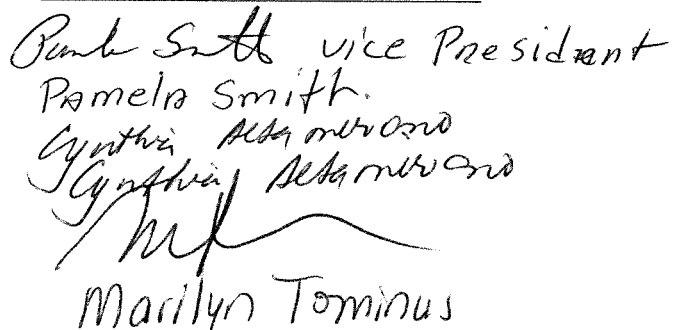 Pamela Smith Vice President
Pamela Smith.
Cynthia Altamirano
Cynthia Altamirano
Marilyn Tominus